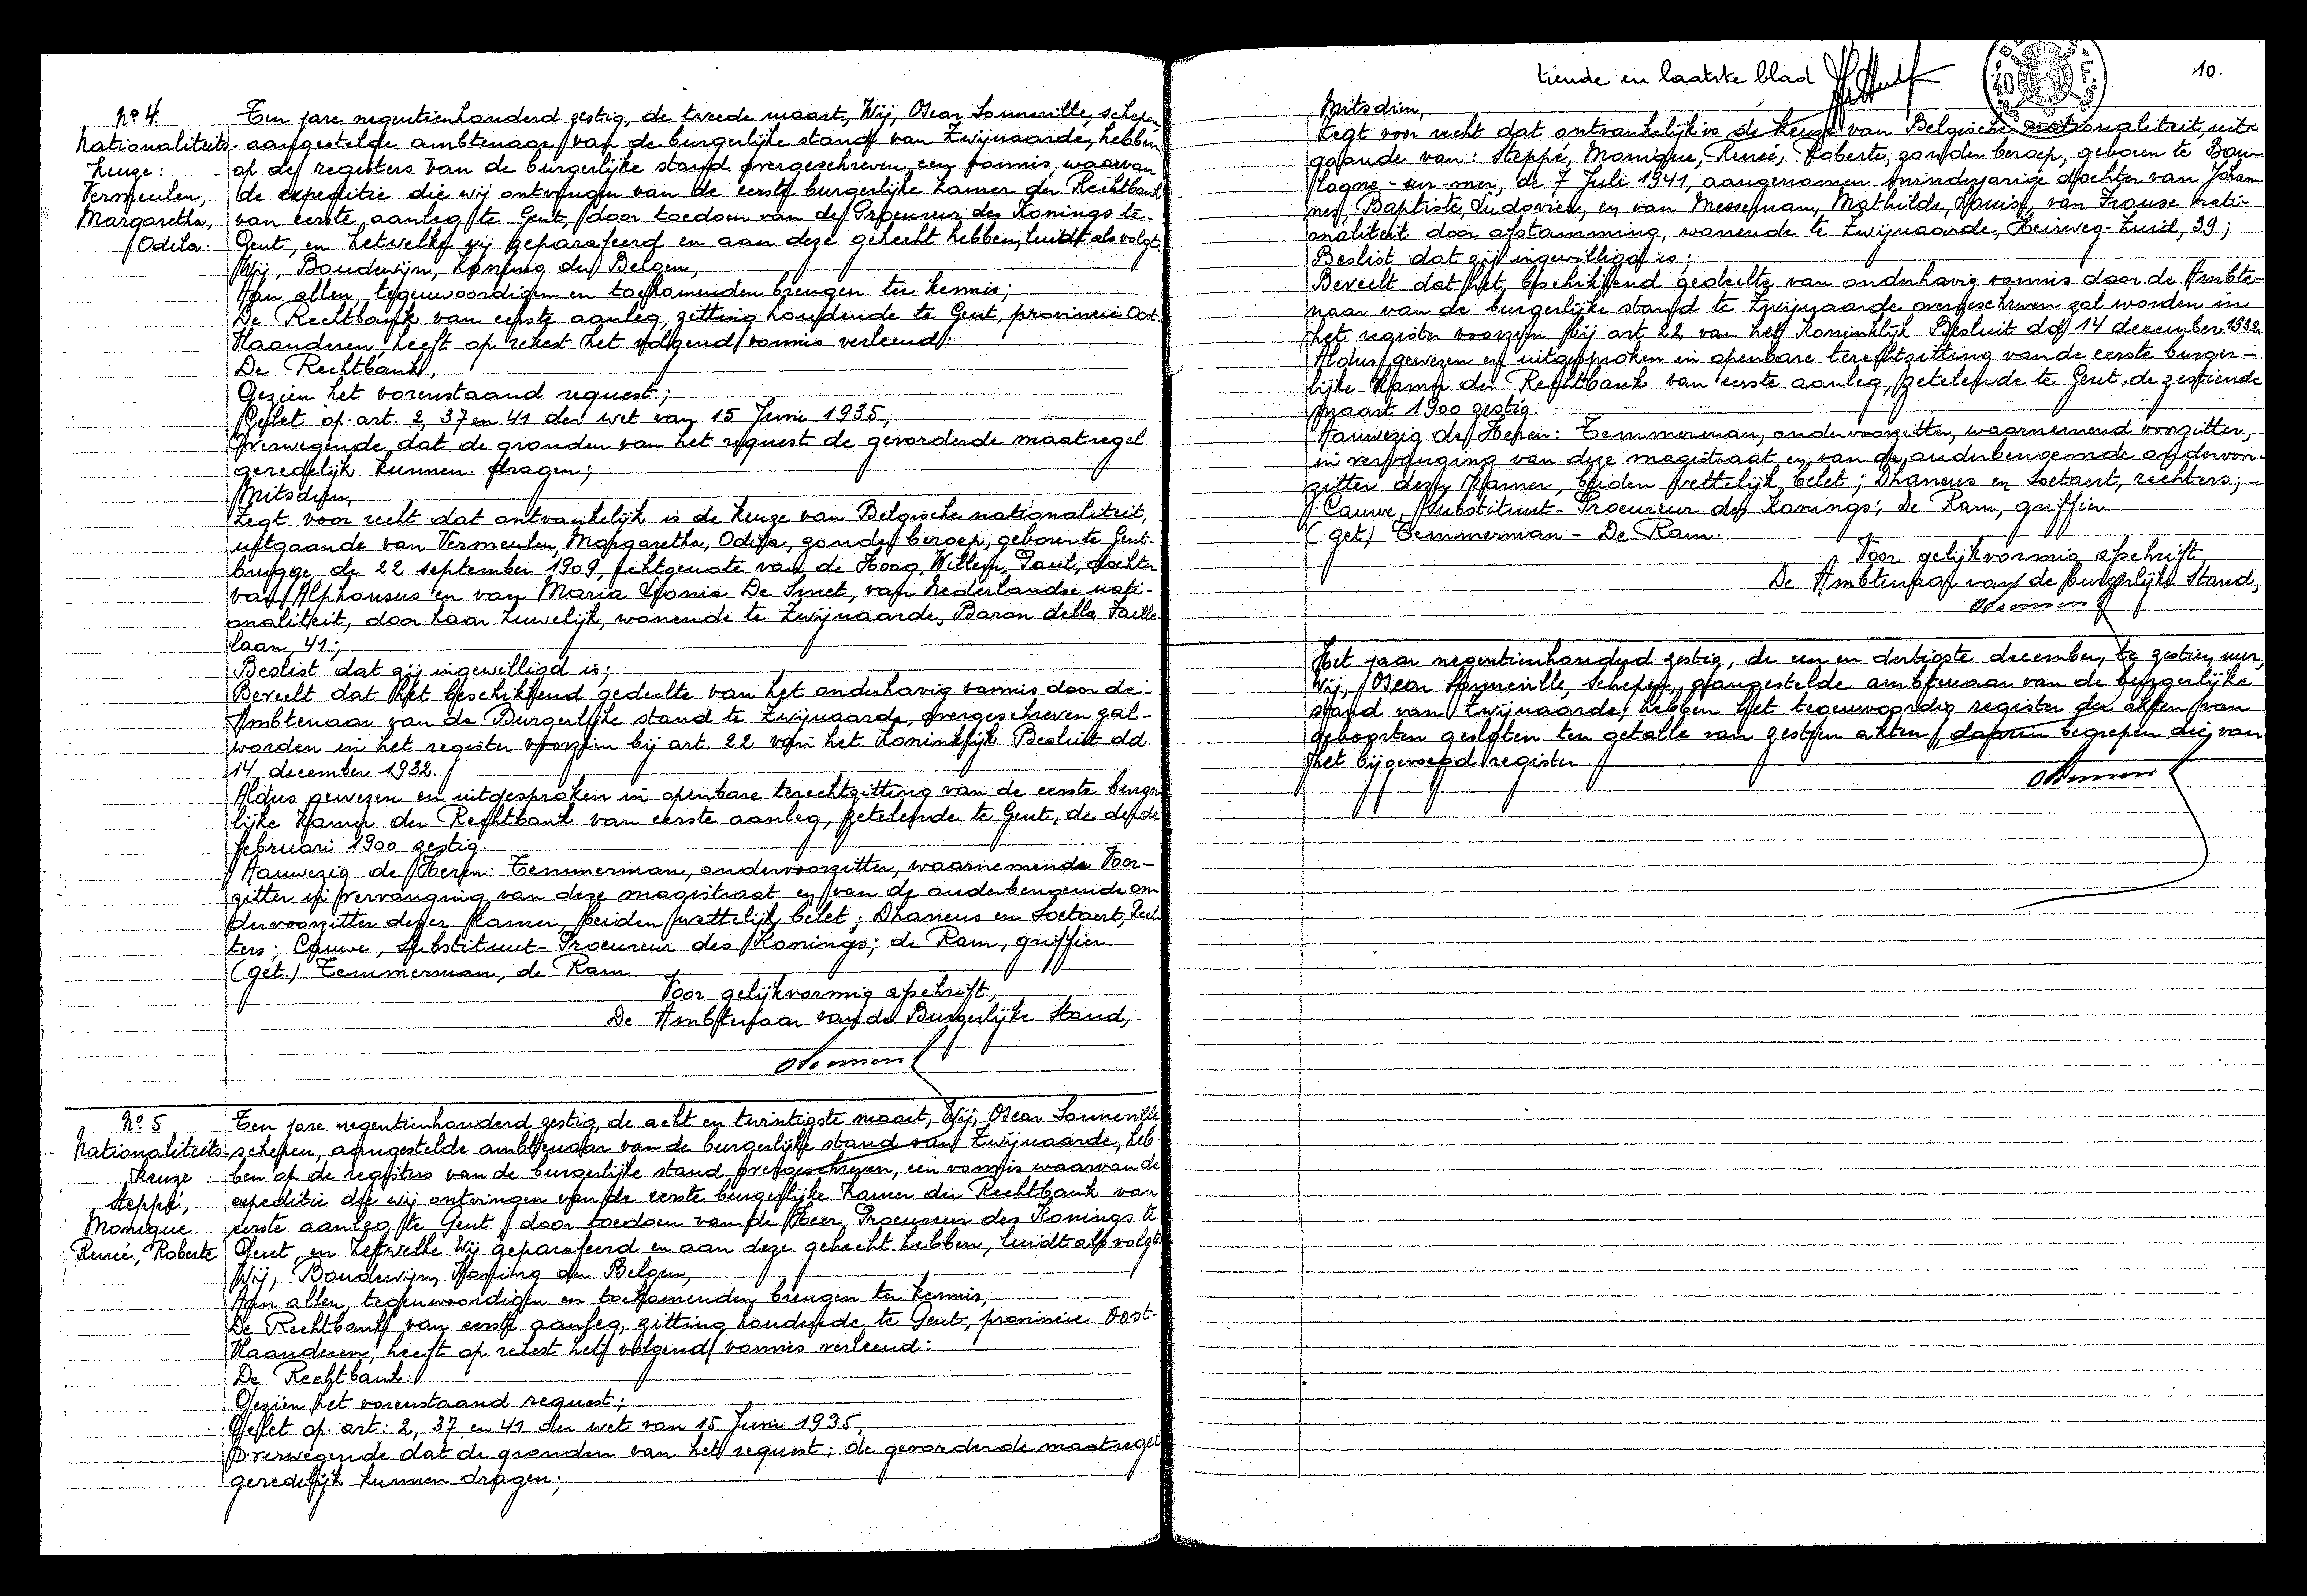 No 4.
Nationaliteits-
keuze:
Vermeulen,
Margaretha,
Odila:
Ten jare negentienhonderd zestig, de tweede maart, Wij, Oscar Sonneville, schepen
aangestelde ambtenaar van de burgerlijke stand van Zwijnaarde, hebben
op de registers van de burgerlijke stand overgeschreven, een vonnis, waarvan
de expeditie die wij ontvingen van de eerste burgerlijke kamer der Rechtbank
van eerste aanleg te Gent, door toedoen van de Procureur des Konings te-
Gent, en hetwelk wij geparafeerd en aan deze gehecht hebben, luidt als volgt.
Wij, Boudewijn, Koning der Belgen,
Aan allen, tegenwoordigen en toekomenden brengen ter kennis;
De Rechtbank van eerste aanleg, zitting houdende te Gent, provincie Oost-
Vlaanderen, heeft op rekest het volgend vonnis verleend:
De Rechtbank,
Gezien het vorenstaand request;
Gelet op art. 2, 37 en 41 der wet van 15 Juni 1935,
Overwegende, dat de gronden van het request de gevorderde maatregel
geredelijk kunnen dragen;
Mitsdien,
Zegt voor recht dat ontvankelijk is de keuze van Belgische nationaliteit,
uitgaande van Vermeulen, Margaretha, Odila, zonder beroep, geboren te Gent-
brugge, de 22 september 1909, echtgenote van de Hoog, Willem, Paul, dochter
van Alphonsus en van Maria Leonia De Smet, van Nederlandse nati-
onaliteit, door haar huwelijk, wonende te Zwijnaarde, Baron della Faille
laan, 41;
Beslist dat zij ingewilligd is;
Beveelt dat het beschikkend gedeelte van het onderhavig vonnis door de
Ambtenaar van de Burgerlijke stand te Zwijnaarde, overgeschreven zal-
worden in het register voorzien bij art. 22 van het Koninklijk Besluit dd.
14 december 1932.
Aldus gewezen en uitgesproken in openbare terechtzitting van de eerste burger
lijke kamer der Rechtbank van eerste aanleg, zetelende te Gent, de derde
februari 1900 zestig.
Aanwezig de Heren: Temmerman, ondervoorzitter, waarnemende Voor-
zitter in vervanging van deze magistraat en van de ouderbenoemde on
dervoorzitter dezer Kamer, beiden wettelijk belet; Dhaneus en Soetaert, Rech-
ters; Cauwe, Substituut-Procureur des Konings; de Ram, griffier.
(get.) Temmerman, de Ram.
Voor gelijkvormig afschrift,
De Ambtenaar van de Burgerlijke Stand,
No 5
Nationaliteits-
keuze:
Steppé,
Monique
Reneé, Roberte
Ten jare negentienhonderd zestig, de acht en twintigste maart, Wij, Oscar Sonneville
schepen, aangestelde ambtenaar van de burgerlijke stand van Zwijnaarde, heb
ben op de registers van de burgerlijke stand overgeschreven, een vonnis waarvan de
expeditie die wij ontvingen van de eerste burgerlijke kamer der Rechtbank van
eerste aanleg te Gent door toedoen van de Heer Procureur des Konings te
Gent, en hetwelke Wij geparafeerd en aan deze gehecht hebben, luidt als volgt:
Wij, Boudewijn, Koning der Belgen,
Aan allen, tegenwoordigen en toekomenden, brengen ter kennis,
De Rechtbank van eerste aanleg, zitting houdende te Gent, provincie Oost-
Vlaanderen, heeft op rekest het volgend vonnis verleend:
De Rechtbank:
Gezien het vorenstaand request;
Gelet op art: 2, 37 en 41 der wet van 15 Juni 1935,
Overwegende dat de gronden van het request; de gevorderde maatregel
geredelijk kunnen dragen;
tiende en laatste blad
10.
40 F.
Mitsdien,
Zegt voor recht dat ontvankelijk is de keuze van Belgische nationaliteit, uit-
gaande van: Steppé, Monique, Reneé, Roberte, zonder beroep, geboren te Bou-
logne-sur-mer, de 7 Juli 1941, aangenomen minderjarige dochter van Johan
nes, Baptiste, Ludovicus, en van Messeman, Mathilde, Louise, van Franse nati-
onaliteit door afstamming, wonende te Zwijnaarde, Heirweg-Zuid, 39;
Beslist dat zij ingewilligd is;
Beveelt dat het beschikkend gedeelte van onderhavig vonnis door de Ambte-
naar van de burgerlijke stand te Zwijnaarde overgeschreven zal worden in
het register voorzien bij art. 22 van het Koninklijk Besluit dd 14 december 1932.
Aldus gewezen en uitgesproken in openbare terechtzitting van de eerste burger-
lijke Kamer der Rechtbank van eerste aanleg, zetelende te Gent, de zestiende
maart 1900 zestig.
Aanwezig de Heren: Temmerman, ondervoorzitter, waarnemend voorzitter,
in vervanging van deze magistraat en van de ouderbenoemde ondervoor-
zitter dezer Kamer, beiden wettelijk belet; Dhaneus en Soetaert, rechters;
Cauwe, Substituut-Procureur des Konings; De Ram, griffier.
(get) Temmerman - De Ram.
Voor gelijkvormig afschrift
De Ambtenaar van de burgerlijke Stand,
Het jaar negentienhonderd zestig, de een en dertigste december, te zestien uur,
Wij, Oscar Sonneville, Schepen, aangestelde ambtenaar van de burgerlijke
stand van Zwijnaarde, hebben het tegenwoordig register der akten van
geboorten gesloten ten getalle van zestien akten, daarin begrepen die van
het bijgevoegd register.